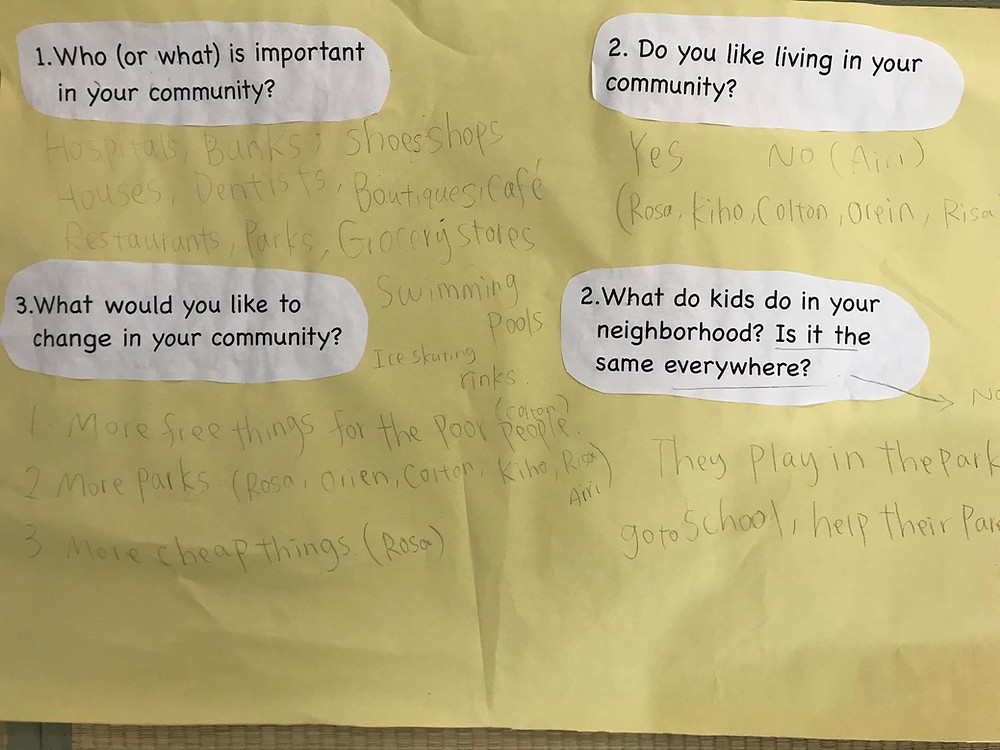 1.Who (or what) is important
in your community?
Hospitals, Banks, Shoes shops
Houses, Dentists, Boutiques, Café
Restaurants, Parks, Grocery stores
Swimming
pools
Ice skating
rinks.
2. Do you like living in your
community?
Yes No (Airi)
(Rosa, Kiho, Colton, Orein, Risa
3.What would you like to
change in your community?
1. More free things for the poor people. (Colton)
2 More parks (Rosa, Orien, Corton, Kiho, Risa)
Airi
3 More cheap things (Rosa)
2.What do kids do in your
neighborhood? Is it the
same everywhere?
No
They play in the park
go to School, help their Pare